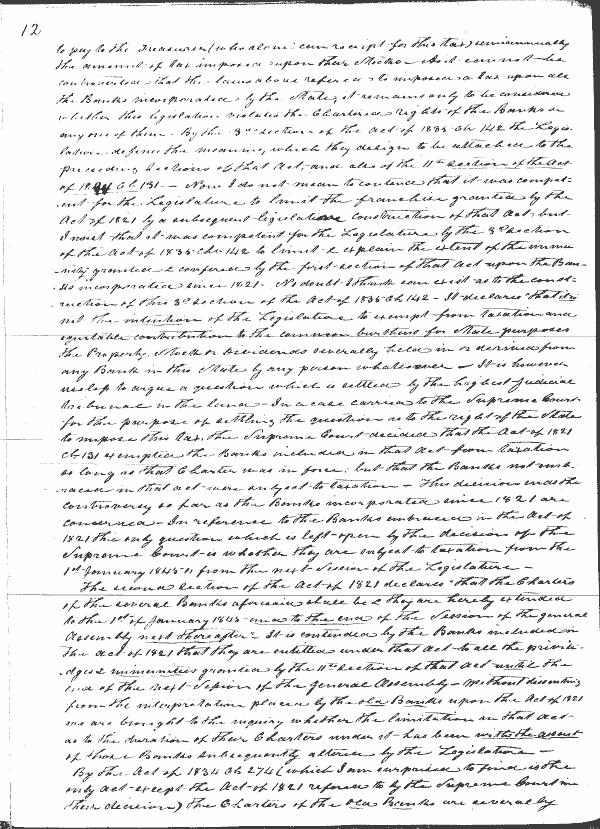 12
to pay to the Treasurer (who alone can receipt for this tax) semiannually
the amount of tax imposed upon their Stocks. As it cannot be
controverted that the laws above refered to imposed a tax upon all
the Banks incorporated by the State, it remains only to be considered
whether this legislation violates the Chartered rights of the Banks or
any one of them. By the 3d section of the Act of 1835 Ch 142 the Legis-
lature defines the meaning which they designed to be attached to the
preceding sections of that Act, and also of the 11th section of the Act
of 1821 Ch 131 — Now I do not mean to contend that it was compet-
ent for the Legislature to limit the franchise granted by the
Act of 1821 by a subsequent legislative construction of that Act, but
I insist that it was competent for the Legislature by the 3d section
of the Act of 1835 Ch 142 to limit & explain the extent of the immu-
nity granted & confered by the first section of that Act upon the Ban-
ks incorporated since 1821. No doubt I think can exist as to the const-
ruction of this 3d section of the Act of 1835 Ch 142 — It declares that it is
not the intention of the Legislature to exempt from taxation and
equitable contribution to the common burthens for State purposes
the Property, Stock or Dividends severally held in or derived from
any Bank in this State by any person whatsoever — It is however
useless to argue a question which is settled by the highest judicial
tribunal in the land — In a case carried to the Supreme Court
for the purpose of settling the question as to the right of the State
to impose this tax, the Supreme Court decided that the Act of 1821
Ch 131 exempted the Banks included in that Act from taxation
so long as that Charter was in force; but that the Banks not emb-
raced in that act were subject to taxation — This decision ends the
controversy so far as the Banks incorporated since 1821 are
concerned — In reference to the Banks embraced in the Act of
1821 the only question which is left open by the decision of the
Supreme Court is whether they are subject to taxation from the
1st January 1845 or from the next Session of the Legislature —
The second section of the Act of 1821 declares "that the Charters
of the several Banks aforesaid shall be & they are hereby extended
to the 1st of January 1845 and to the end of the Session of the general
Assembly next thereafter." It is contended by the Banks included in
the Act of 1821 that they are entitled under that Act to all the privile-
dges & immunities granted by the 11th section of that Act until the
end of the next Session of the General Assembly — Without dissenting
from the interpretation placed by the old Banks upon the Act of 1821
we are brought to the inquiry whether the limitation in that Act
as to the duration of their Charters under it has been with the assent
of those Banks subsequently altered by the Legislature —
By the Act of 1834 Ch 274 (which I am surprised to find is the
only act except the Act of 1821 refered to by the Supreme Court in
their decision) the Charters of the old Banks are severally